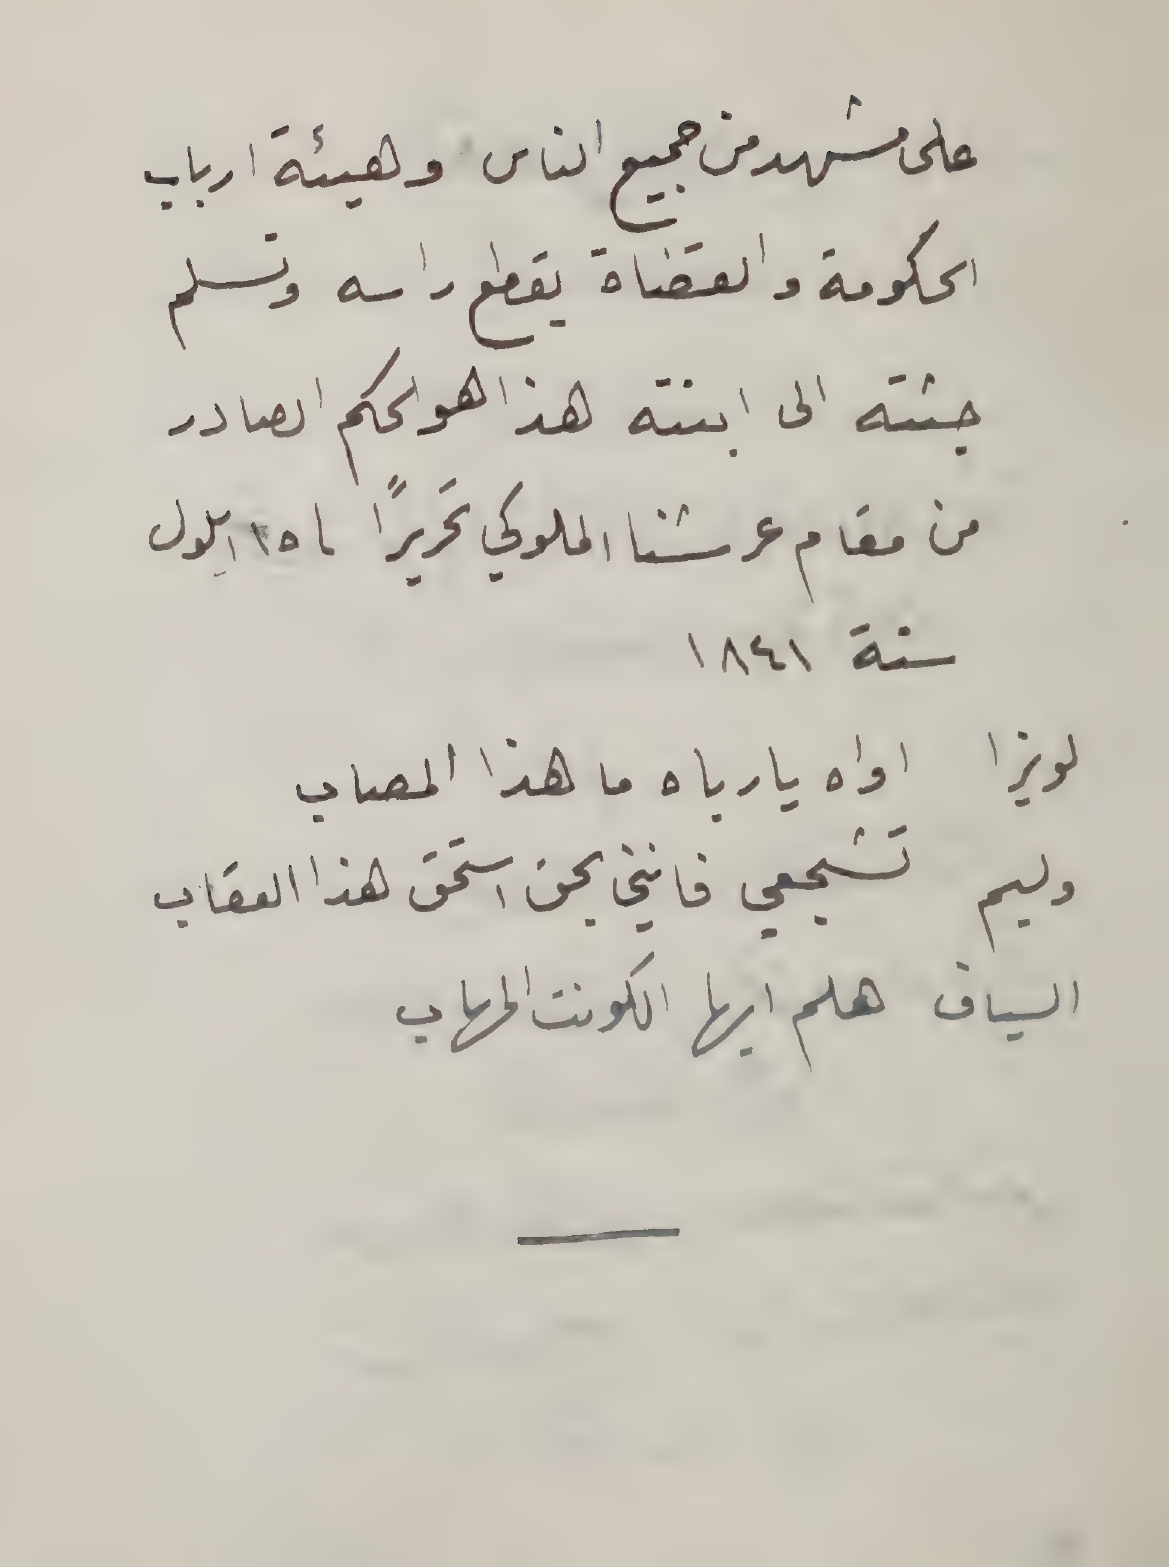 على مشهد من جميع الناس وهيئة ارباب
الحكومة والقضاة يقطع راسه وتسلم
جثته الى ابنته هذا هو الحكم الصادر
من مقام عرشنا الملوكي تحريرًا ايلول
سنة ١٨٤١
لويزا اواه يارباه ما هذا المصاب
وليم تشجعي فانني بحق استحق هذا العقاب
السياف هلم ايها الكونت المهاب